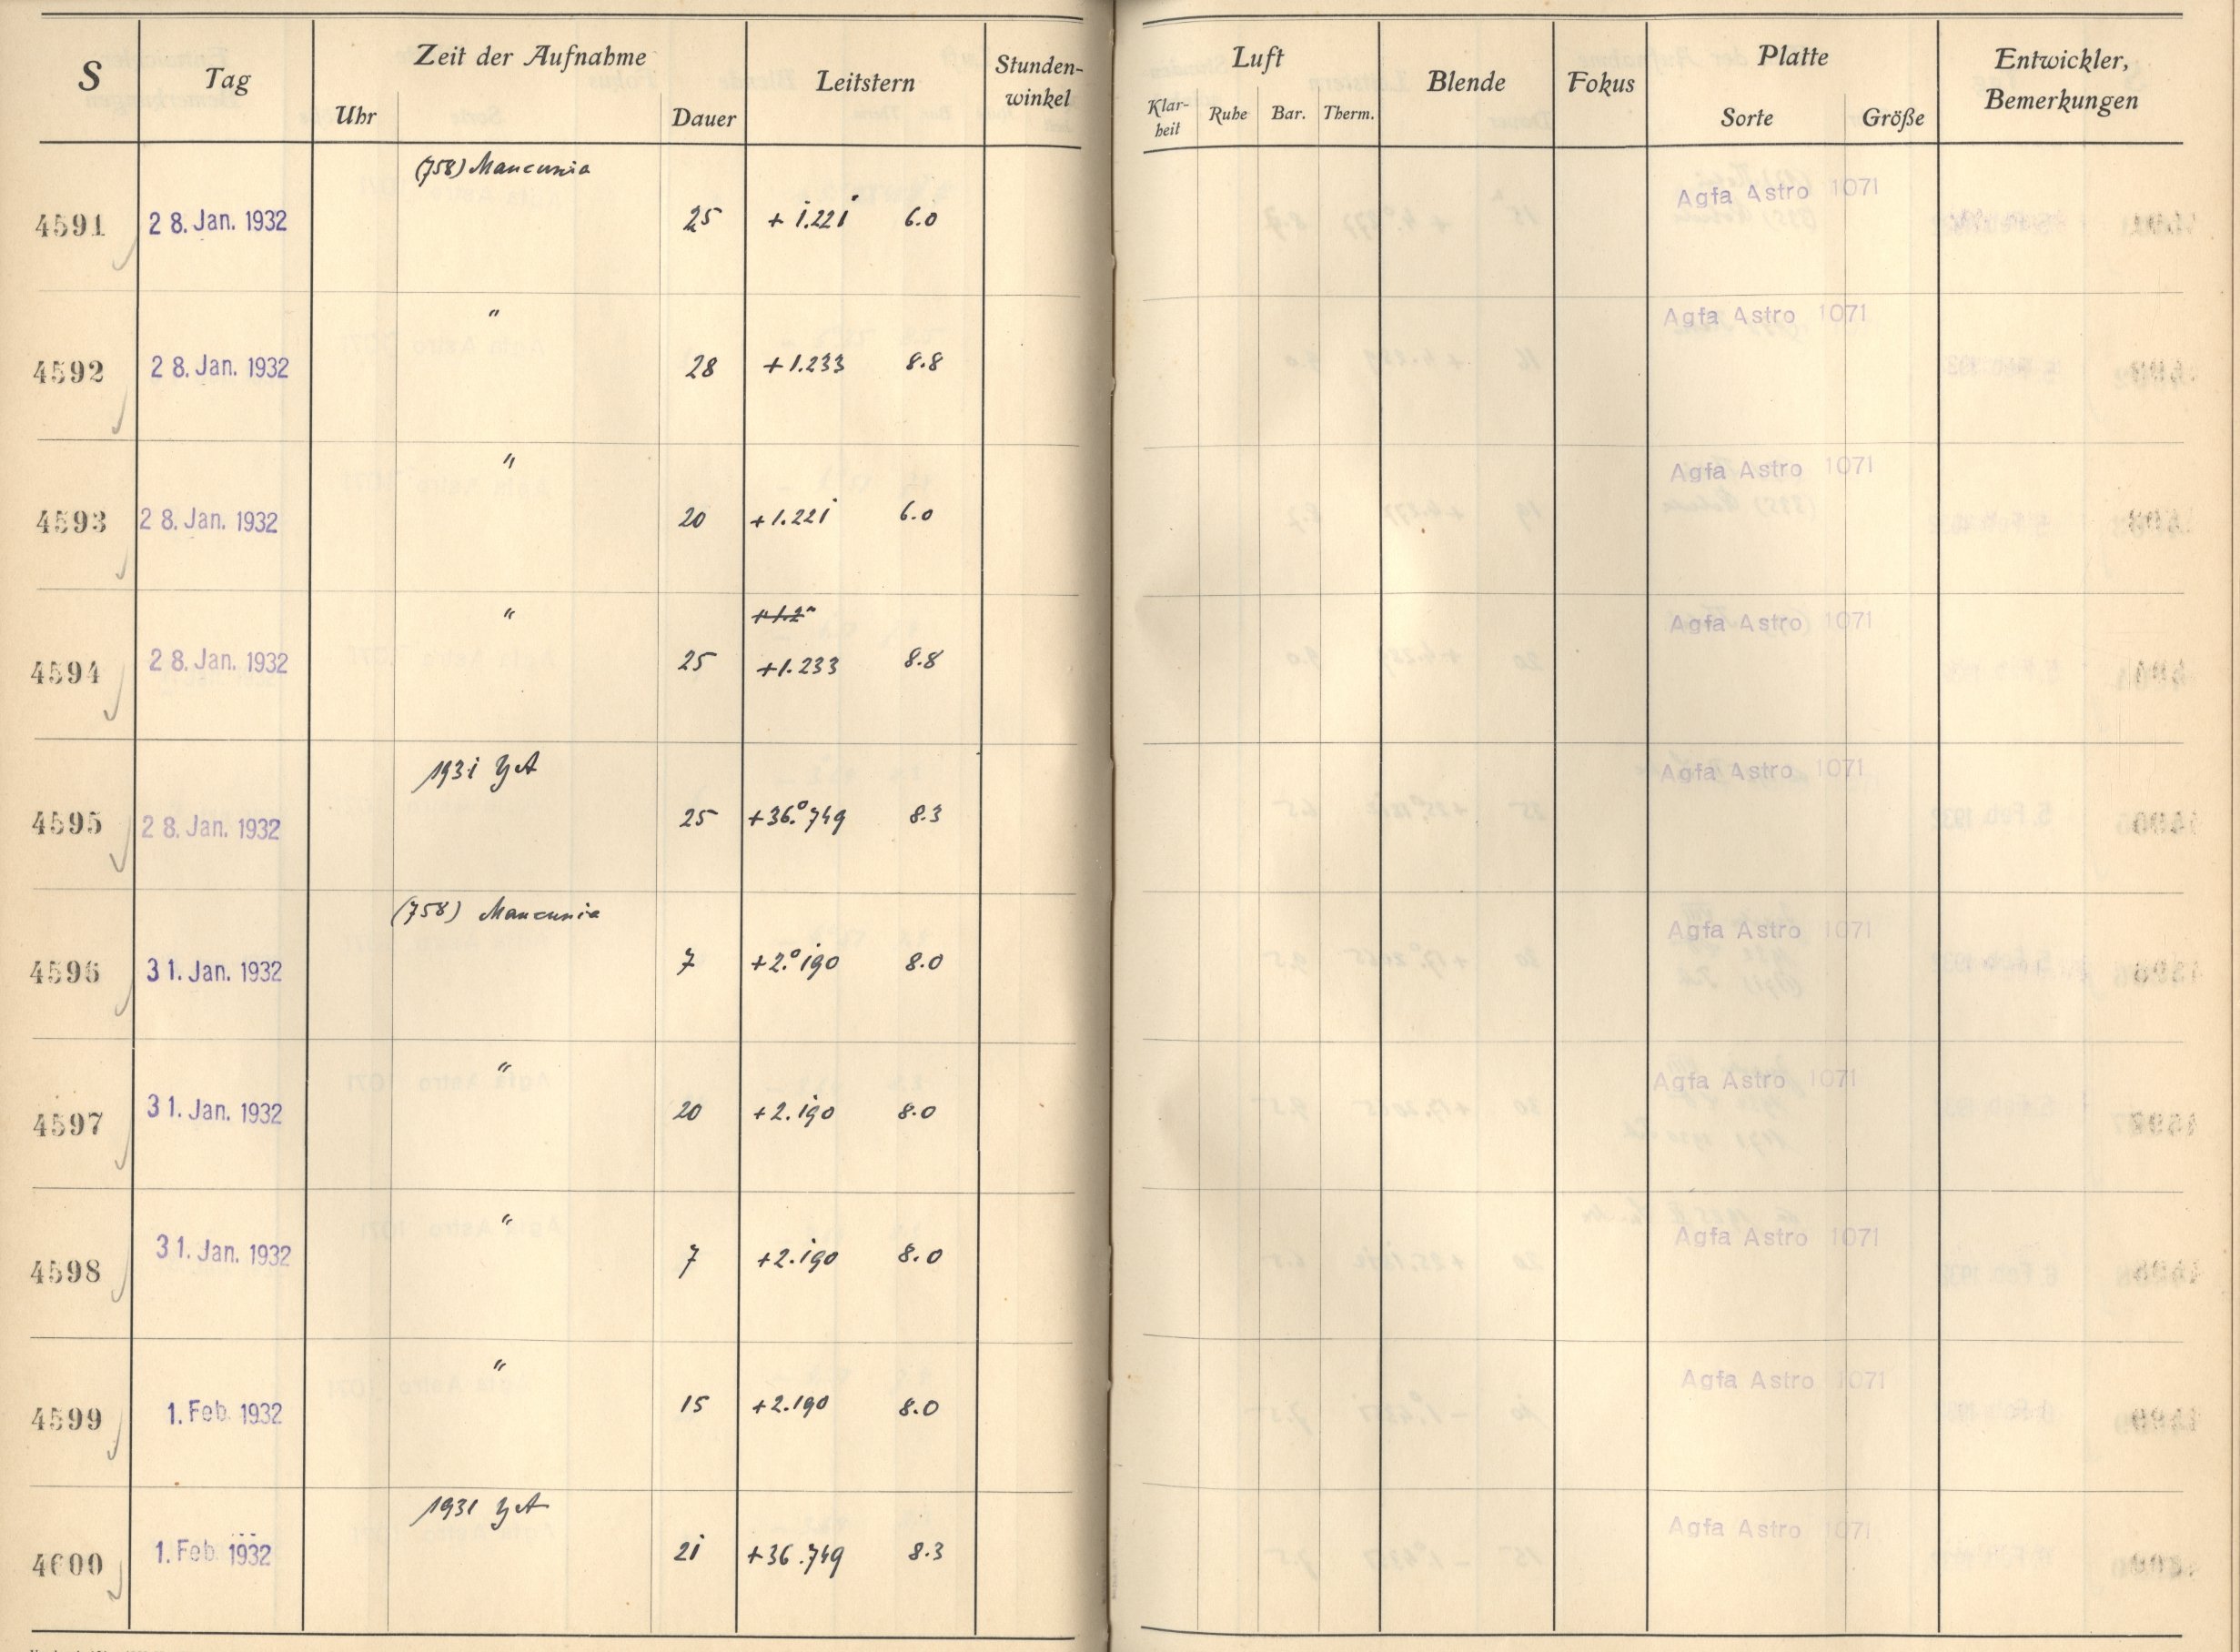 S Tag Zeit der Aufnahme Leitstern Stunden-winkel Luft Blende Fokus Platte Entwickler, Bemerkungen
Uhr Dauer Klar-heit Ruhe Bar. Therm. Sorte Größe
(758) Mancunia
4591 28. Jan. 1932 25 +1.221 6.0 Agfa Astro 1071
"
4592 28. Jan. 1932 28 +1.233 8.8 Agfa Astro 1071
"
4593 28. Jan. 1932 20 +1.221 6.0 Agfa Astro 1071
" +1.2
4594 28. Jan. 1932 25 +1.233 8.8 Agfa Astro 1071
1931 YA
4595 28. Jan. 1932 25 +36.°749 8.3 Agfa Astro 1071
(758) Mancunia
4596 31. Jan. 1932 7 +2.°190 8.0 Agfa Astro 1071
"
4597 31. Jan. 1932 20 +2.190 8.0 Agfa Astro 1071
"
4598 31. Jan. 1932 7 +2.190 8.0 Agfa Astro 1071
"
4599 1. Feb. 1932 15 +2.190 8.0 Agfa Astro 1071
1931 YA
4600 1. Feb. 1932 21 +36.749 8.3 Agfa Astro 1071